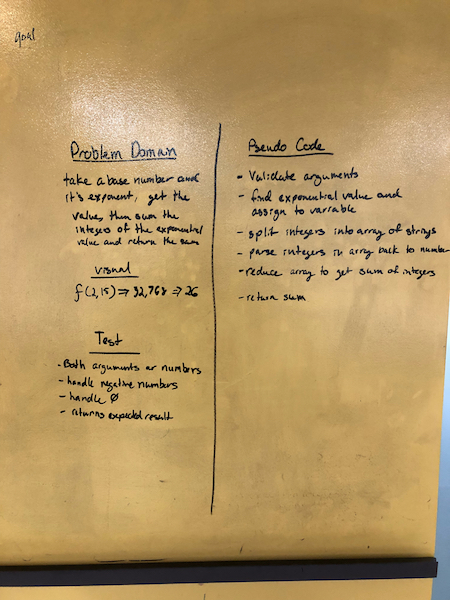 goal
Problem Domain
take a base number and
it's exponent, get the
value, then sum the
integers of the exponential
value and return the sum
visual
f(2,15) ⇒ 32,768 ⇒ 26
Test
- Both arguments are numbers
- handle negative numbers
- handle Ø
- returns expected result
Pseudo Code
- Validate arguments
- find exponential value and
assign to variable
- split integers into array of strings
- parse integers in array back to number
- reduce array to get sum of integers
- return sum